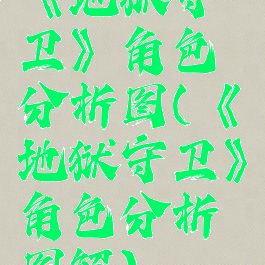 《地狱守
卫》角色
分析图(《
地狱守卫》
角色分析
图解)